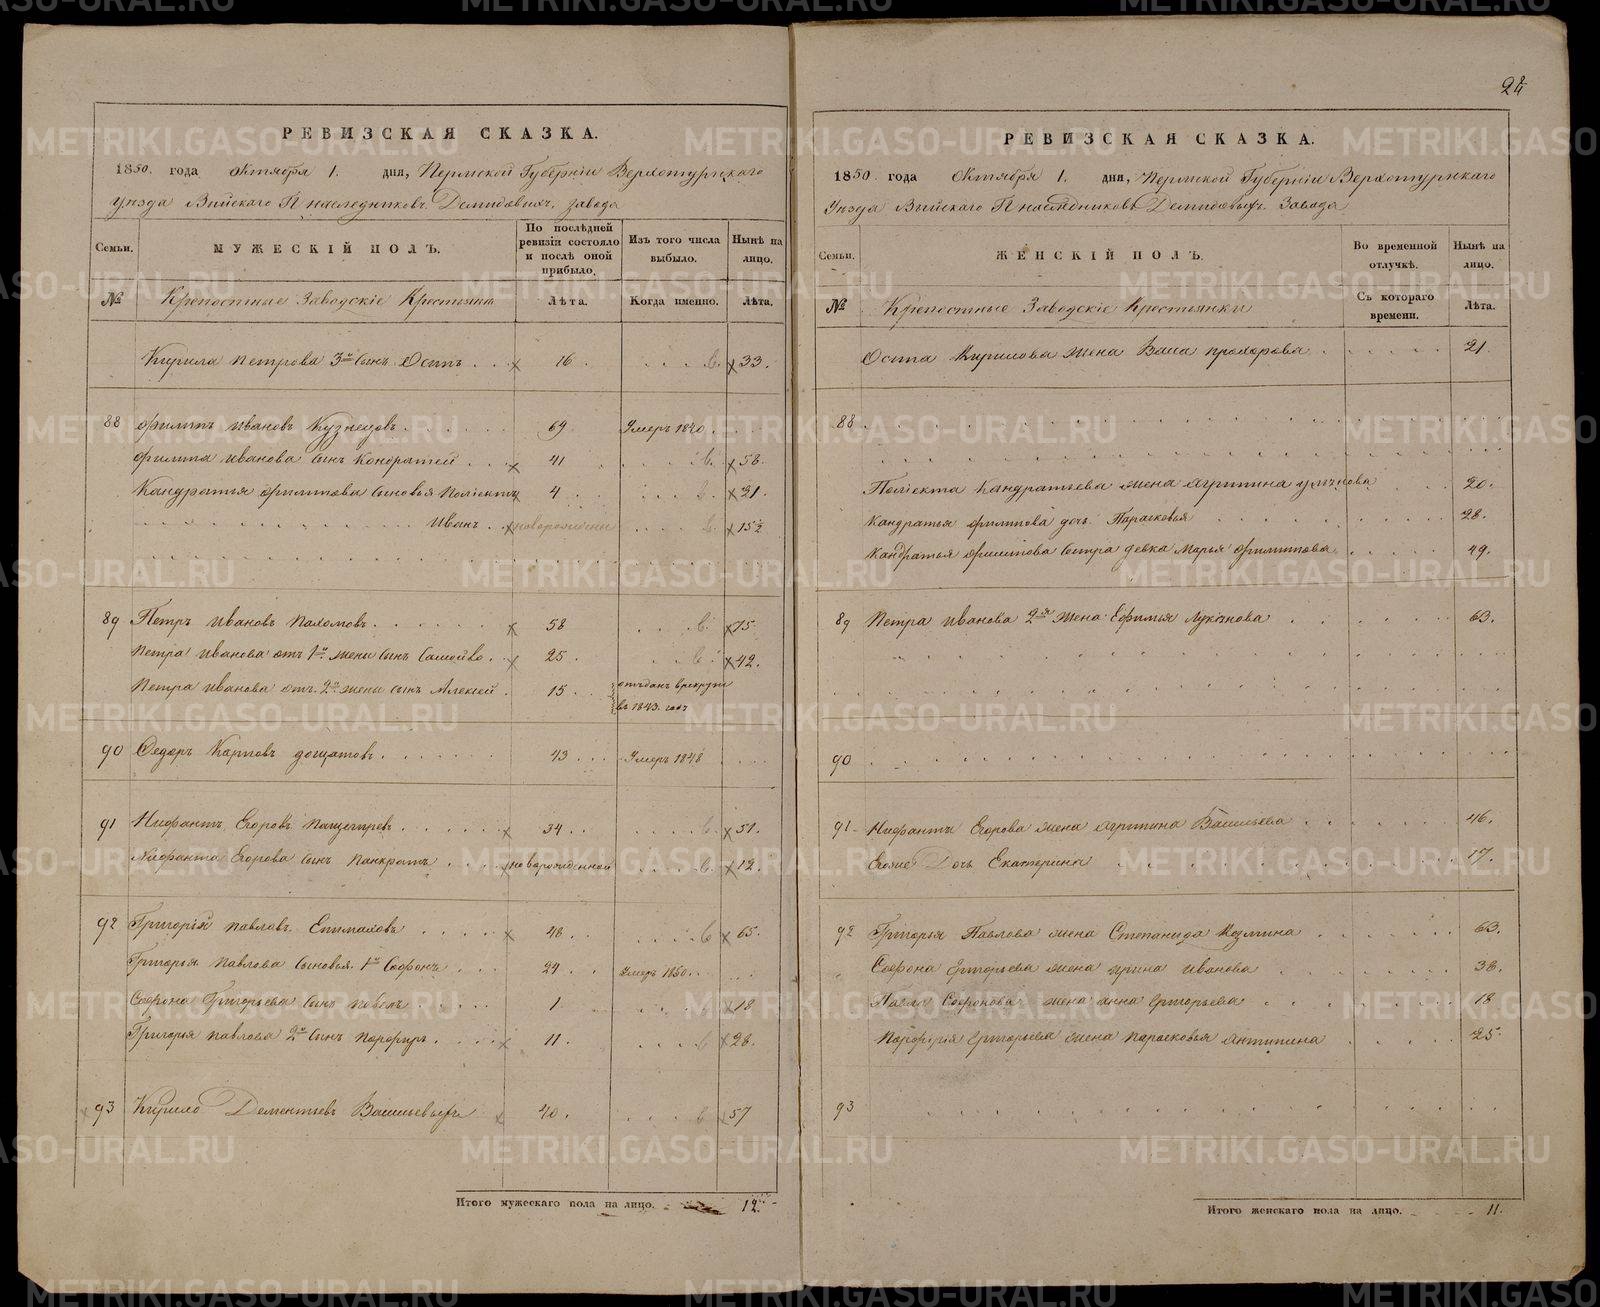 24
РЕВИЗСКАЯ СКАЗКА.
1850 года Октября 1. дня, Пермской Губерніи Верхотурскаго
уезда Выйскаго Гг наследниковъ Демидовыхъ завода
Семьи. МУЖЕСКІЙ ПОЛЪ. По послѣдней ревизіи состояло и послѣ оной прибыло. Изъ того числа выбыло. Нынѣ на лицо.
№ Крепостные Заводскіе Крестьяна Лѣта. Когда именно. Лѣта.
Кирила Петрова 3й сынъ Осипъ 16 33.
88 Филипъ Ивановъ Кузнецовъ 69 Умеръ 1840
Филипа Иванова сынъ Кондратей 41 58.
Кандратья Филипова сыновья Поліектъ 4 21.
Иванъ новорожденны 15½
89 Петръ Ивановъ Пахомовъ 58 75
Петра Иванова отъ 1й жены сынъ Самойло 25. 42.
Петра Иванова отъ 2й жены сынъ Алексей 15 отъданъ в рекруты
въ 1843. годъ
90 Федоръ Карповъ дощатовъ 43 Умеръ 1848
91 Нифантъ Егоровъ 34 51.
Нифанта Егорова сынъ Панкратъ новорожденной 12.
92 Григорій Павловъ Епимаховъ 48 65.
Григорья Павлова сыновья 1й Софонъ 24 Умеръ 1850.
Софрона Григорьева сынъ Павелъ 1. 18
Григорья Павлова 2й сынъ Порфиръ 11. 28.
93 Кирило Дементьевъ Васильевыхъ 40. 57
Итого мужескаго пола на лицо. 12.
РЕВИЗСКАЯ СКАЗКА.
1850 года Октября 1. дня, Пермской Губерніи Верхотурскаго
Уезда Выйскаго Гг наследниковъ Демидовыхъ Завода
Семьи. ЖЕНСКІЙ ПОЛЪ. Во временной отлучкѣ. Нынѣ на лицо.
№ Крепостные Заводскіе Крестьянки Съ котораго времени. Лѣта.
Осипа Кирилова жена Васа Прохорова 21.
88
Поліекта Кандратьева жена Агрипина 20.
Кандратья Филипова дочь Парасковья 28.
Кандратья Филипова сестра девка Марья Филипова 49.
89 Петра Иванова 2я жена Ефимья Лукянова 63.
90
91 Нифанта Егорова жена Агрипина Васильева 46.
Егоже Дочь Екатерина 17.
92 Григорья Павлова жена Степанида Козмина 63.
Софрона Григорьева жена Ирина Иванова 38.
Павла Софронова жена Анна Григорьева 18
Порфирія Григорьева жена Парасковья Антипина 25.
93
Итого женскаго пола на лицо. 11.
METRIKI.GASO-URAL.RU